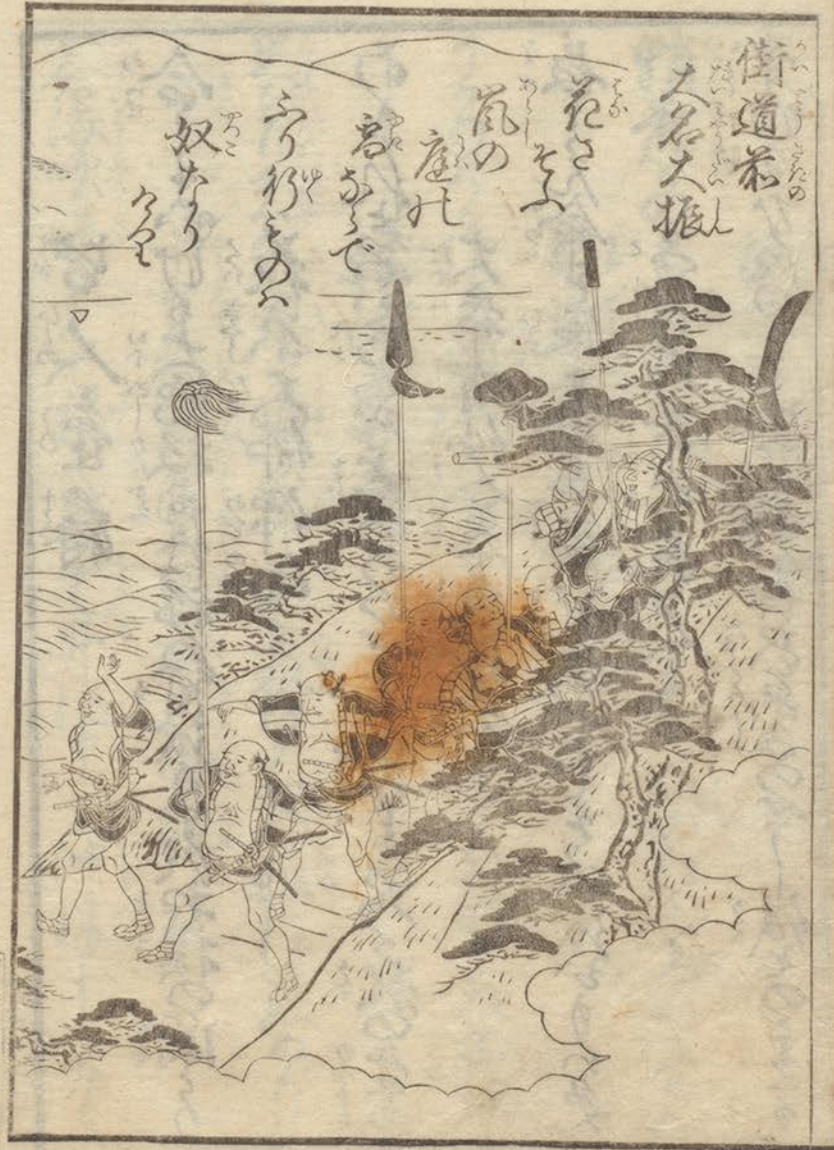 街道前
大名大振
花さ
そふ
嵐の
庭の
雪ならで
ふり行ものハ
奴なり
けり